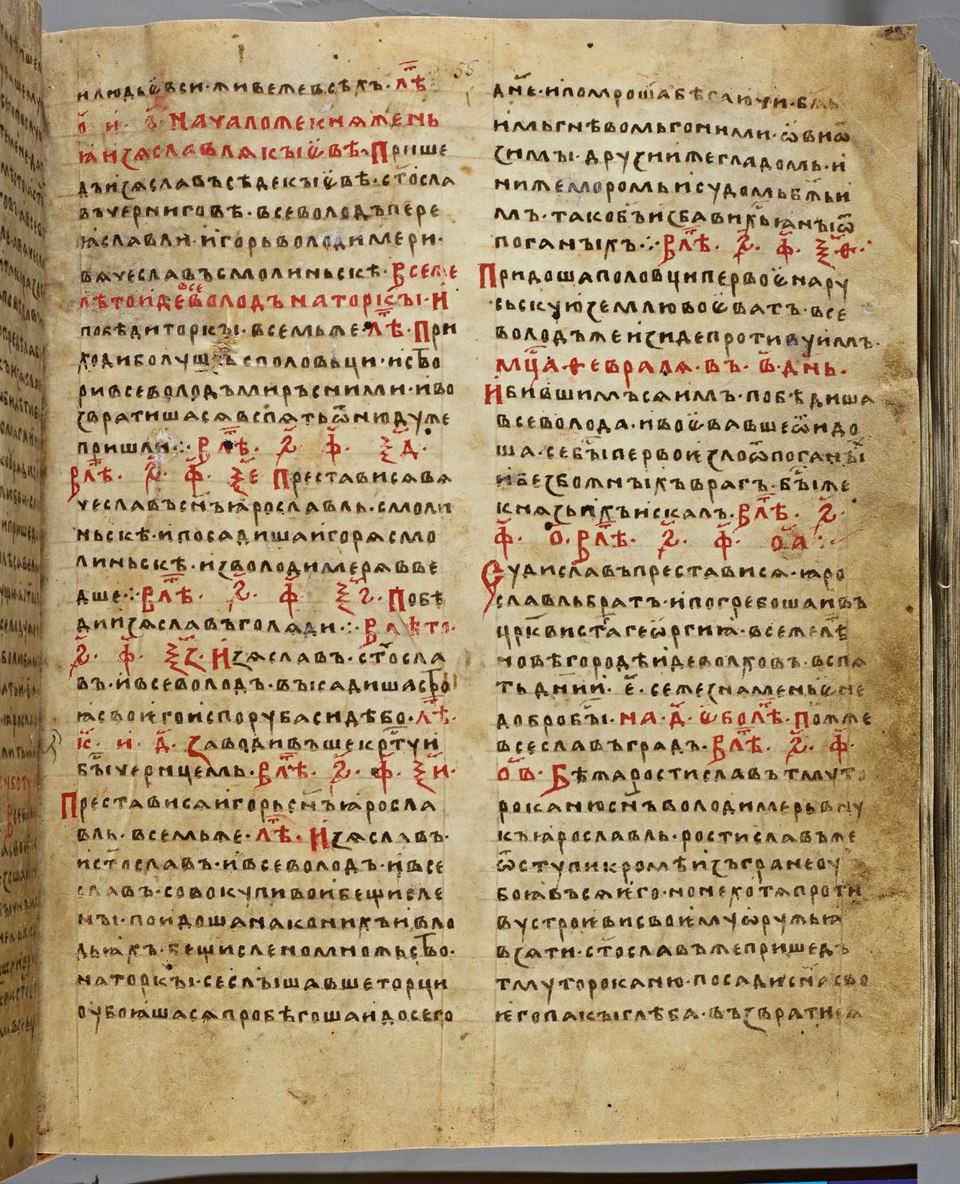 55
и людьѡ вси · живеже всѣхъ · лѣ҃
о҃ и · ѕ҃ · Начало же кнѧжень
ꙗ изѧславлѧ кыѥвѣ · Прише
дъ изѧславъ сѣде кыѥвѣ · ст҃осла
въ черниговѣ · всеволодъ пере
ꙗславли · игорь володимери ·
вѧчеславъ смолиньскѣ · В семь же
лѣто иде всеволодъ на торкꙑ · и
побѣди торкꙑ · в семь же лѣ҃ · При
ходи болушь с половьци · и ство
ри всеволодъ миръ с ними · и во
звратишасѧ вспѧть ѿнюдуже
пришли ⁘ В лѣ҃ · ҂ѕ҃ · ф҃ · ѯ҃д ·
В лѣ҃ · ҂ѕ҃ · ф҃ · ѯ҃е Престависѧ вѧ
чеславъ сн҃ъ ꙗрославль · смоли
ньскѣ · и посадиша игорѧ смо
линьскѣ · из володимерѧ выве
дше ⁘ В лѣ҃ · ҂ѕ҃ · ф҃ · ѯ҃ѕ · Побѣ
ди изѧславъ голѧди ⁘ В лѣто ·
҂ѕ҃ · ф҃ · ѯ҃з · Изѧславъ · ст҃осла
въ · и всеволодъ · въсадиша стро
ꙗ своѥго ис поруба · сидѣ бо · лѣ҃ ·
к҃ · и · д҃ · Заводивъше крс҃ту и
бꙑ чернцемь · В лѣ҃ · ҂ѕ҃ · ф҃ · ѯ҃и ·
Престависѧ игорь сн҃ъ ꙗросла
вль · в семь же · лѣ҃ · Изѧславъ ·
и ст҃ославъ · и всеволодъ · и все
славъ · совокупи вои бещисле
нꙑ · поидоша на конихъ и в ло
дьꙗхъ · бещислено множьство ·
на торкꙑ · се слꙑшавше торци
оубоꙗшасѧ пробѣгоша и до сего
дн҃е · и помроша бѣгаючи · бж҃ь
имь гнѣвомь гоними · ѡви ѿ
зимꙑ · друзии же гладомь · и
ни же моромь и судомь бж҃ьи
мь · тако бъ избави хрс҃ьꙗнꙑ ѿ
поганꙑхъ ⁘ В лѣ҃ · ҂ѕ҃ · ф҃ · ѯ҃ѳ ⁘
Придоша половци первоѥ на ру
сьскую землю воѥватъ · все
володъ же изиде противу имъ ·
мс҃ца · февралѧ · въ · в҃ · днь ·
И бившимъсѧ имъ · побѣдиша
всеволода · и воѥвавше ѿидо
ша · се бꙑ первоѥ зло ѿ поганꙑ
и безбожнꙑхъ врагъ · бꙑ же
кнѧзь ихъ искалъ · В лѣ҃ · ҂ѕ҃ ·
ф҃ · о҃ · В лѣ҃ · ҂ѕ҃ · ф҃ · о҃а ⁘
Судиславъ престависѧ · ꙗро
славль братъ · и погребоша и въ
цр҃кви ст҃аго геѡргиꙗ · в се же лѣ҃
новѣгородѣ иде волховъ · вспѧ
ть днии · е҃ · се же знаменьѥ не
добро бꙑ · на · д҃ · ѥ бо лѣ҃ · Пожже
всеславъ градъ · В лѣ҃ · ҂ѕ҃ · ф҃ ·
о҃в · Бѣжа ростиславъ тмуто
роканю сн҃ъ володимерь вну
къ ꙗрославль · ростиславъ же
ѿступи кромѣ изъ града не оу
боꙗвъсѧ ѥго · но не хотѧ проти
ву строѥви своѥму ѡружьꙗ
взѧти · ст҃ославъ же пришедъ
тмутороканю · посади сн҃а сво
ѥго пакꙑ глѣба · възвратисѧ